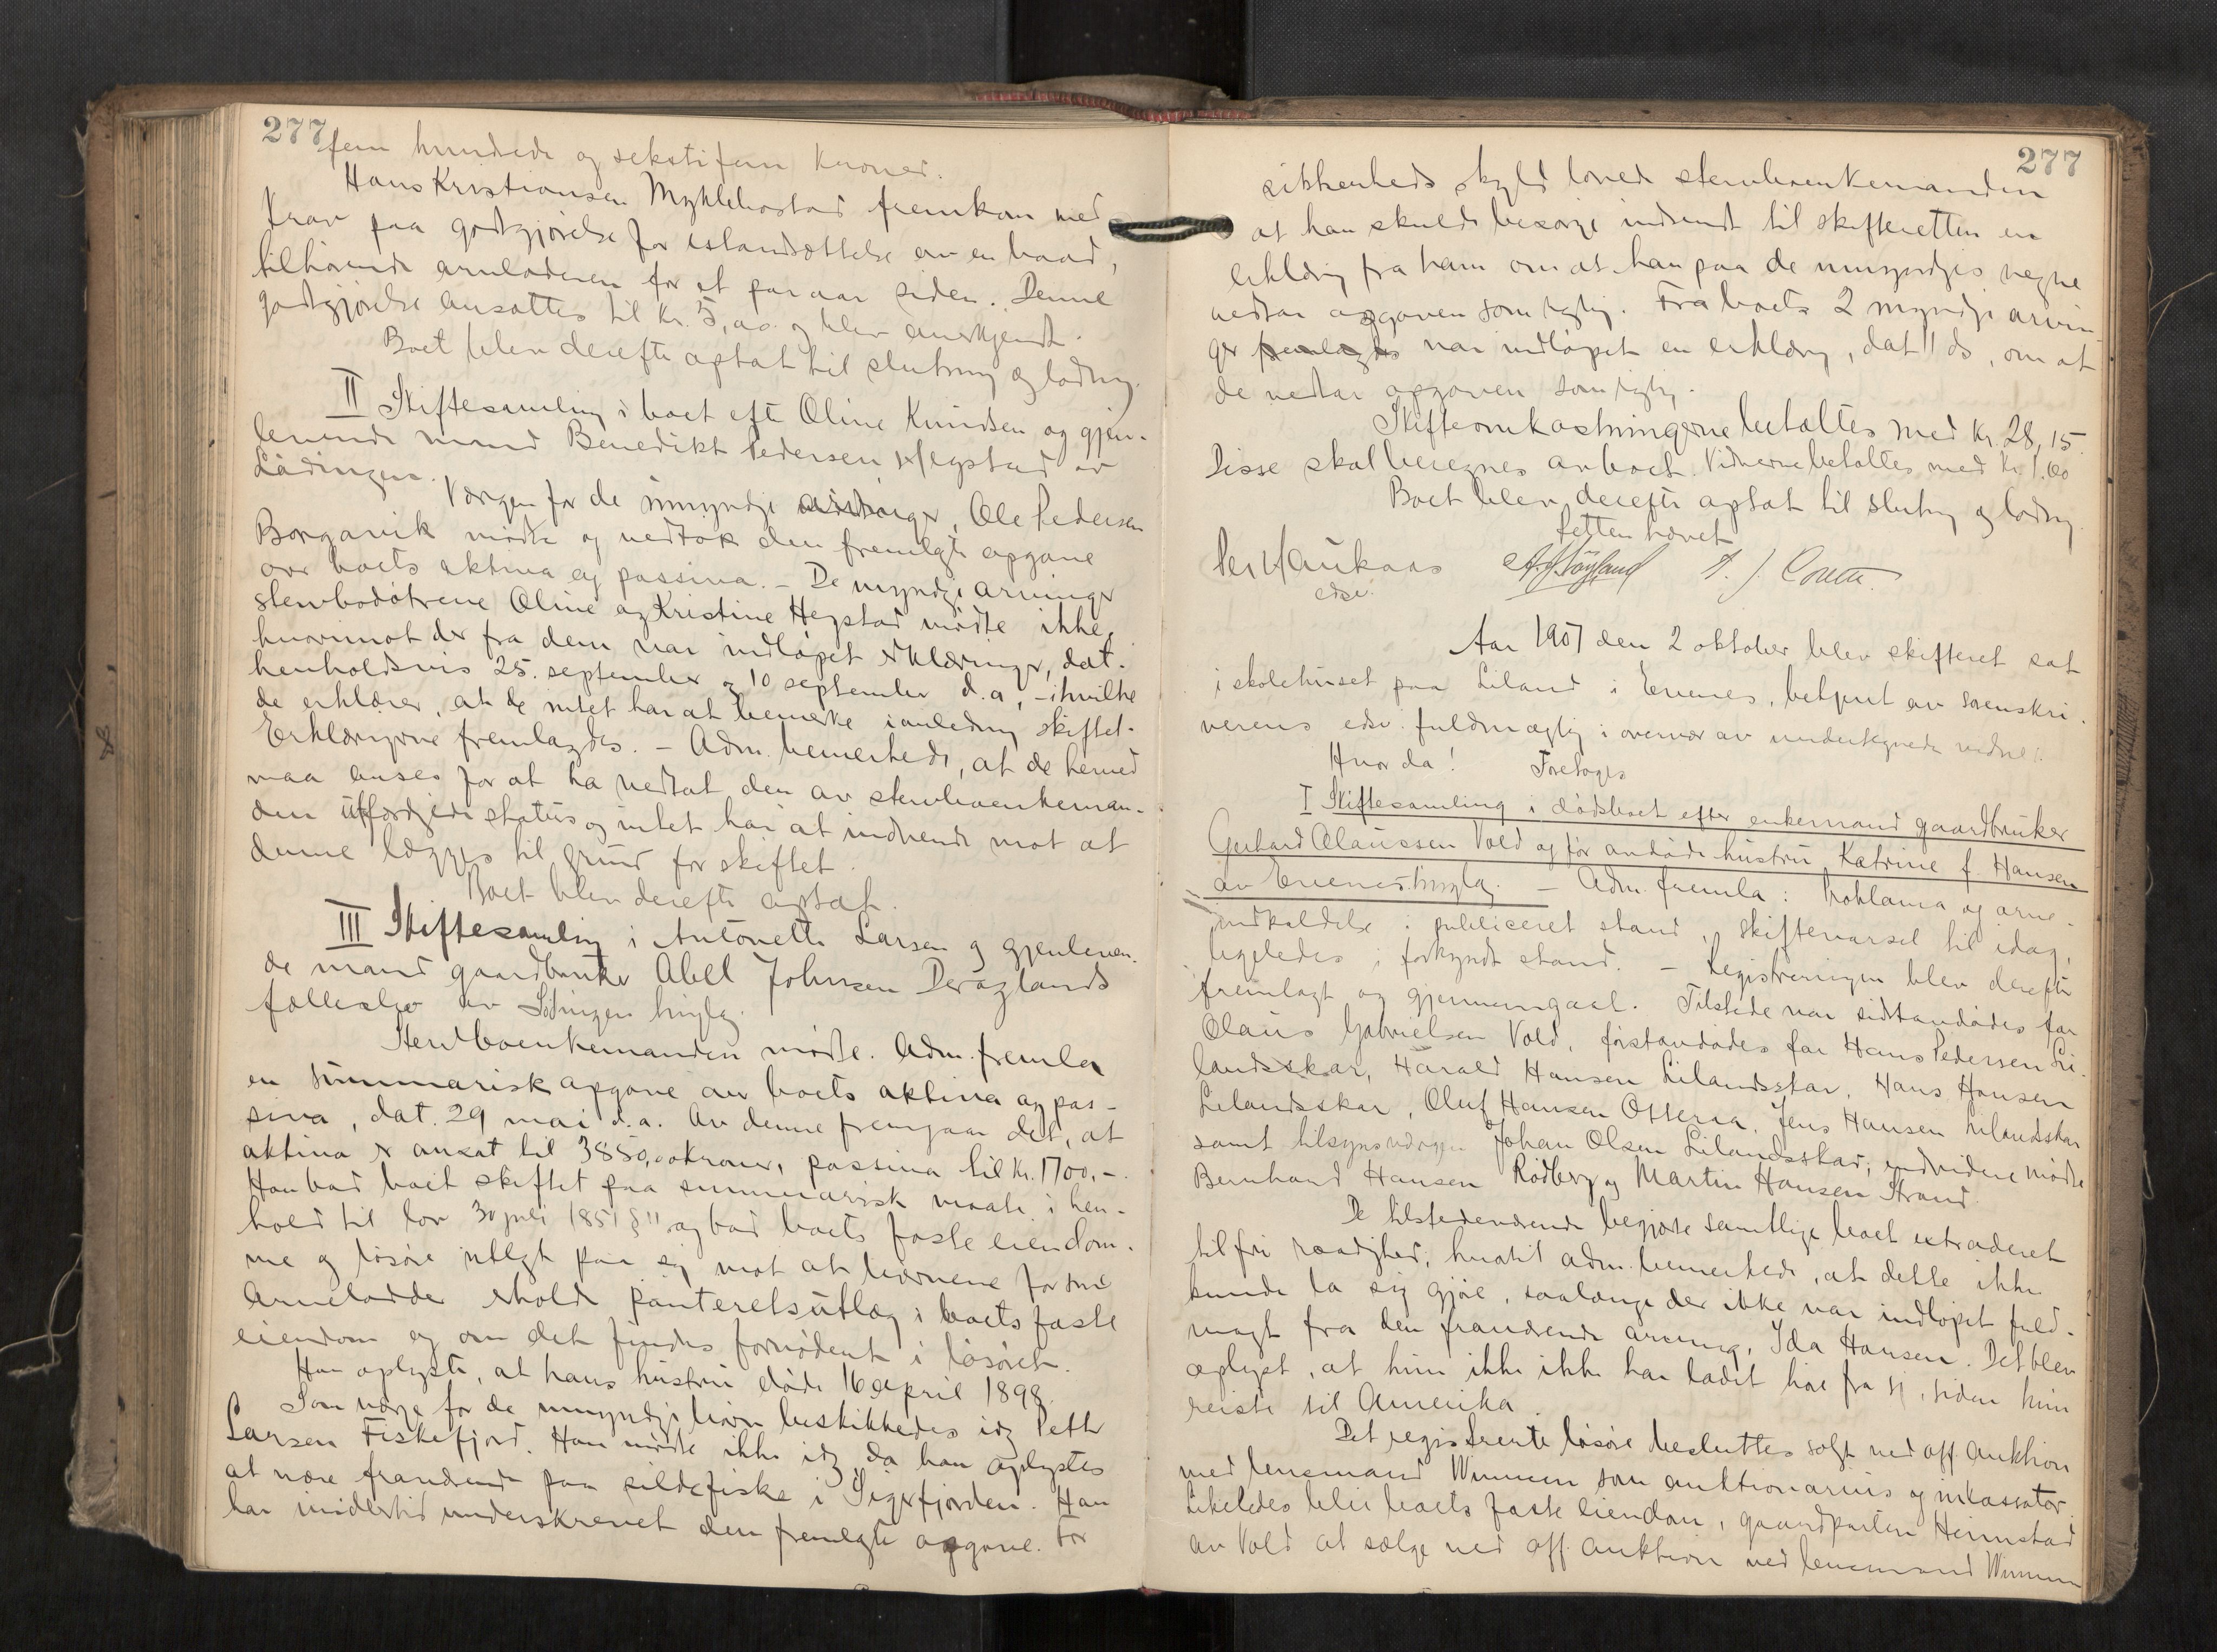 277
fem hundrede og sekstifem kroner.
Hans Kristiansen Myklebostad fremkom med
krav paa godtgjørelse for istandsættelse av en baad,
tilhørende arveladeren for et par aar siden. Denne
godtgjørelse ansattes til kr. 5,00 og blev anerkjendt.
Boet blev derefter optat til slutning og lodning.
II Skiftesamling i boet eft Oline Knudsen og gjen-
levende mand Benedikt Pedersen Hegstad av
Lødingen.
Værgen for de umyndige arvinger, Ole Pedersen
Borgarvik mødte og vedtok den fremlagte opgave
over boets aktiva og passiva. – De myndige arvinger
stervbodøtrene Oline og Kristine Hegstad mødte ikke,
hvorimot der fra dem var indløpet erklæringer, dat.
henholdsvis 25. september og 10 september d.a, – i hvilke
de erklærer, at de intet har at bemerke i anledning skiftet.
Erklæringerne fremlagdes. – Adm. bemerkede, at de herved
maa anses for at ha vedtat den av stervboenkeman-
den utfærdigede status og intet har at indvende mot at
denne lægges til grund for skiftet.
Boet blev derefter optat.
III Skiftesamling i Antonette Larsen og gjenleven-
de mand gaardbruker Abel Johnsen Deraglands
fællesbo av Lødingen tinglag.
Stervboenkemanden mødte. Adm. fremla
en summarisk opgave av boets aktiva og pas-
siva, dat. 29 mai d.a. Av denne fremgaar det, at
aktiva er ansat til 3850,00 kroner, passiva til kr. 1700,–.
Han bad boet skiftet paa summarisk maate i hen-
hold til lov 30 juli 1851 § 11 og bad boets faste eiendom-
me og løsøre utlagt paa sig mot at børnene for sine
arvelodder erholder panteretsutlæg i boets faste
eiendom og om det findes fornødent i løsøret.
Han oplyste, at hans hustru døde 16 april 1898.
Som værge for de umyndige børn beskikkedes idag Petter
Larsen Fiskefjord. Han mødte ikke idag, da han oplystes
at være fraværende paa sildefiske i Sigerfjorden. Han
har imidlertid underskrevet den fremlagte opgave. For
277
sikkerheds skyld lovede stervboenkemanden
at han skulde besørge indsendt til skifteretten en
erklæring fra ham om at han paa de umyndiges vegne
vedtar opgaven som rigtig. Fra boets 2 myndige arvin-
ger fremlagdes var indløpet en erklæring, dat 1 ds, om at
de vedtar opgaven som rigtig.
Skifteomkostningerne betaltes med kr. 28,15
Disse skal beregnes av boet. Vidnerne betaltes med kr. 1.00
Boet blev derefter optat til slutning og lodning
Retten hævet
Per Haukaas
edsv.
Aar 1907 den 2 oktober blev skifteret sat
i skolehuset paa Liland i Evenes, betjent av sorenskri-
verens edsv. fuldmægtig i overvær av undertegnede vidner:
Hvor da! Foretoges
I Skiftesamling i dødsboet efter enkemand gaardbruker
Gerhard Olaussen Vold og før avdøde hustru Katrine f. Hansen
av Evenes tinglag. – Adm. fremla: Proklama og arve-
indkaldelse i publiceret stand, skiftevarsel til idag,
ligeledes i forkyndt stand. – Registreringen blev derefter
fremlagt og gjennemgaat. Tilstede var sidstavdødes far
Olaus Gabrielsen Vold, førstavdødes far Hans Pedersen Li-
landsskar, Harald Hansen Lilandsskar, Hans Hansen
Lilandsskar, Oluf Hansen Osterva, Jens Hansen Lilandsskar
samt tilsynsværgen Johan Olsen Lilandsskar; endvidere mødte
Bernhard Hansen Rødberg og Martin Hansen Strand.
De tilstedeværende begjærte samtlige boet extraderet
til fri raadighed, hvortil adm. bemerkede, at dette ikke
kunde la sig gjøre, saalænge der ikke var indløpet fuld-
magt fra den fraværende arving, Ida Hansen. Det blev
oplyst, at hun ikke ikke har ladet høre fra sig, siden hun
reiste til Amerika.
Det registrerte løsøre besluttes solgt ved off. auktion
med lensmand Wimmen som auktionarius og inkassator.
Likeledes blir boets faste eiendom, gaardparten Heimstad
av Vold at sælge ved off. auktion ved lensmand Wimmen